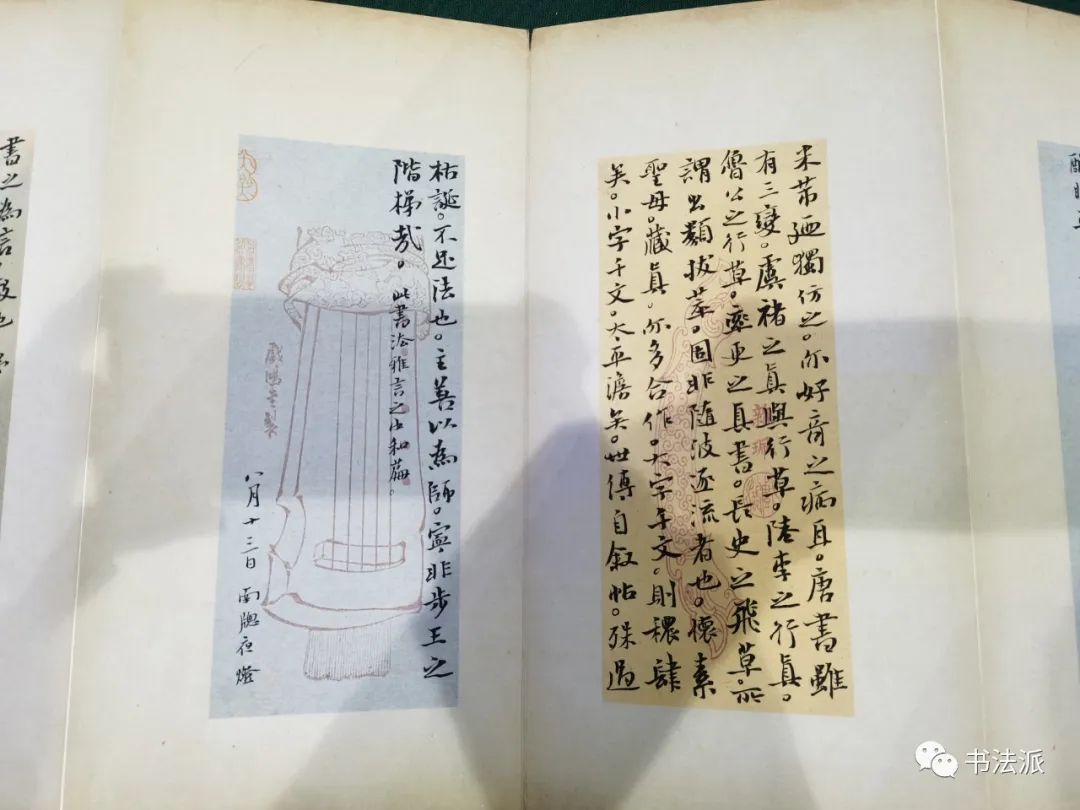 米芾迺獨仿之。亦好奇之病耳。唐書雖
有三變。虞褚之真與行草。陸李之行真。
魯公之行草。率更之真書。長史之飛草。所
謂出類拔萃。固非隨波逐流者也。懷素
聖母。藏真。亦多合作。大字千文。則穠肆
矣。小字千文。太平澹矣。世傳自叙帖。殊過
枯誕。不足法也。主善以為師。寧非步王之
階梯哉。此書法雅言之中和篇。
八月十三日 南牕夜燈
戲鴻堂製
書之為言
书法派